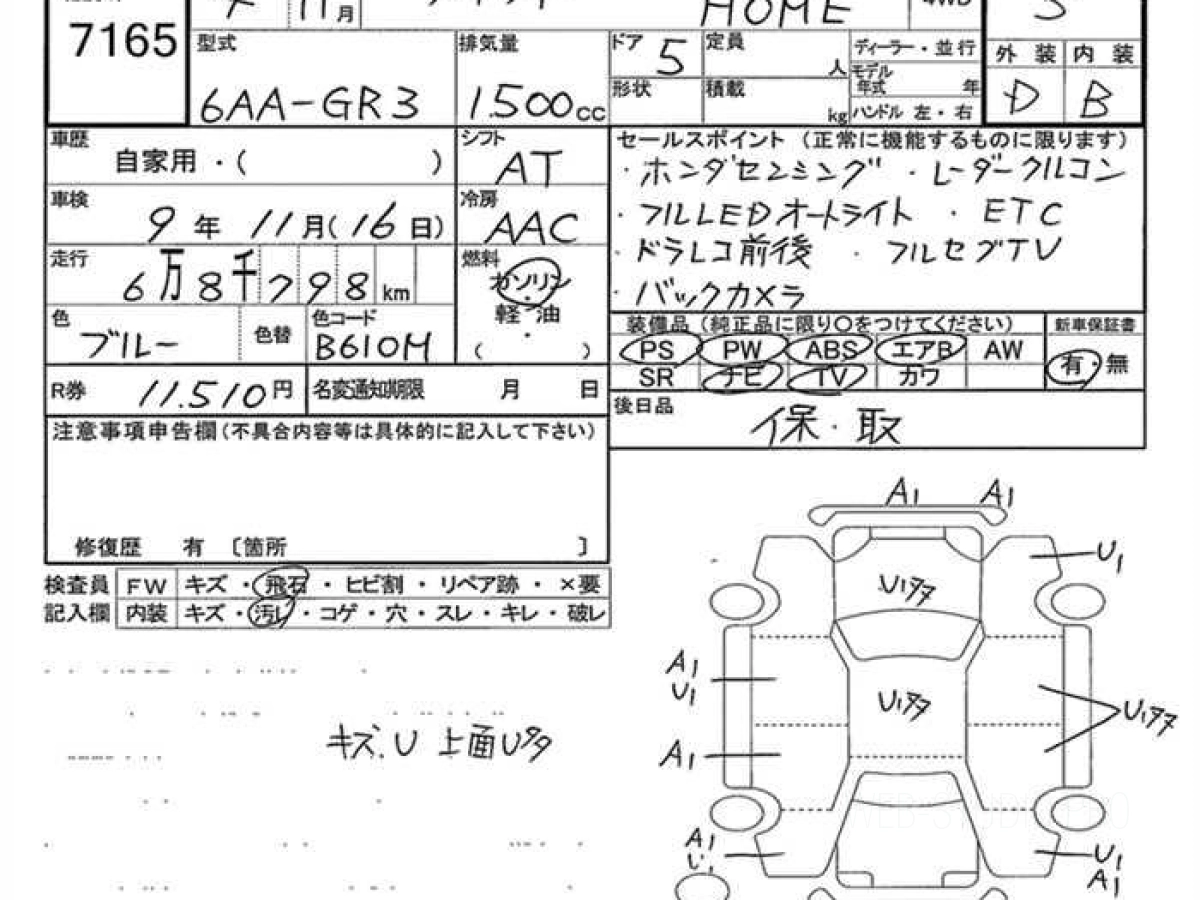 月 HOME 4WD
7165 型式 排気量 ドア 5 定員 人 ディーラー・並行 外装 内装
6AA-GR3 1.500cc 形状 積載 kg モデル年式 年 D B
ハンドル 左・右
車歴 自家用・( ) シフト AT セールスポイント (正常に機能するものに限ります)
・ホンダセンシング ・レーダークルコン
車検 9年 11月(16日) 冷房 AAC ・フルLEDオートライト ・ETC
走行 6万8千798km 燃料 ガソリン ・ドラレコ前後 ・フルセグTV
軽・油 ・バックカメラ
色 ブルー 色替 色コード B610M ( ・ ) 装備品 (純正品に限り○をつけてください) 新車保証書
PS PW ABS エアB AW 有・無
R券 11.510円 名変通知期限 月 日 SR ナビ TV カワ
注意事項申告欄(不具合内容等は具体的に記入して下さい) 後日品 保・取
修復歴 有 〔箇所 〕
検査員 FW キズ・飛石・ヒビ割・リペア跡・×要
記入欄 内装 キズ・汚レ・コゲ・穴・スレ・キレ・破レ
キズ.U 上面Uタタ
A1 A1
U1
U1タタ
A1
U1
U1タタ
U1タタ
A1
A1
U1
U1
A1